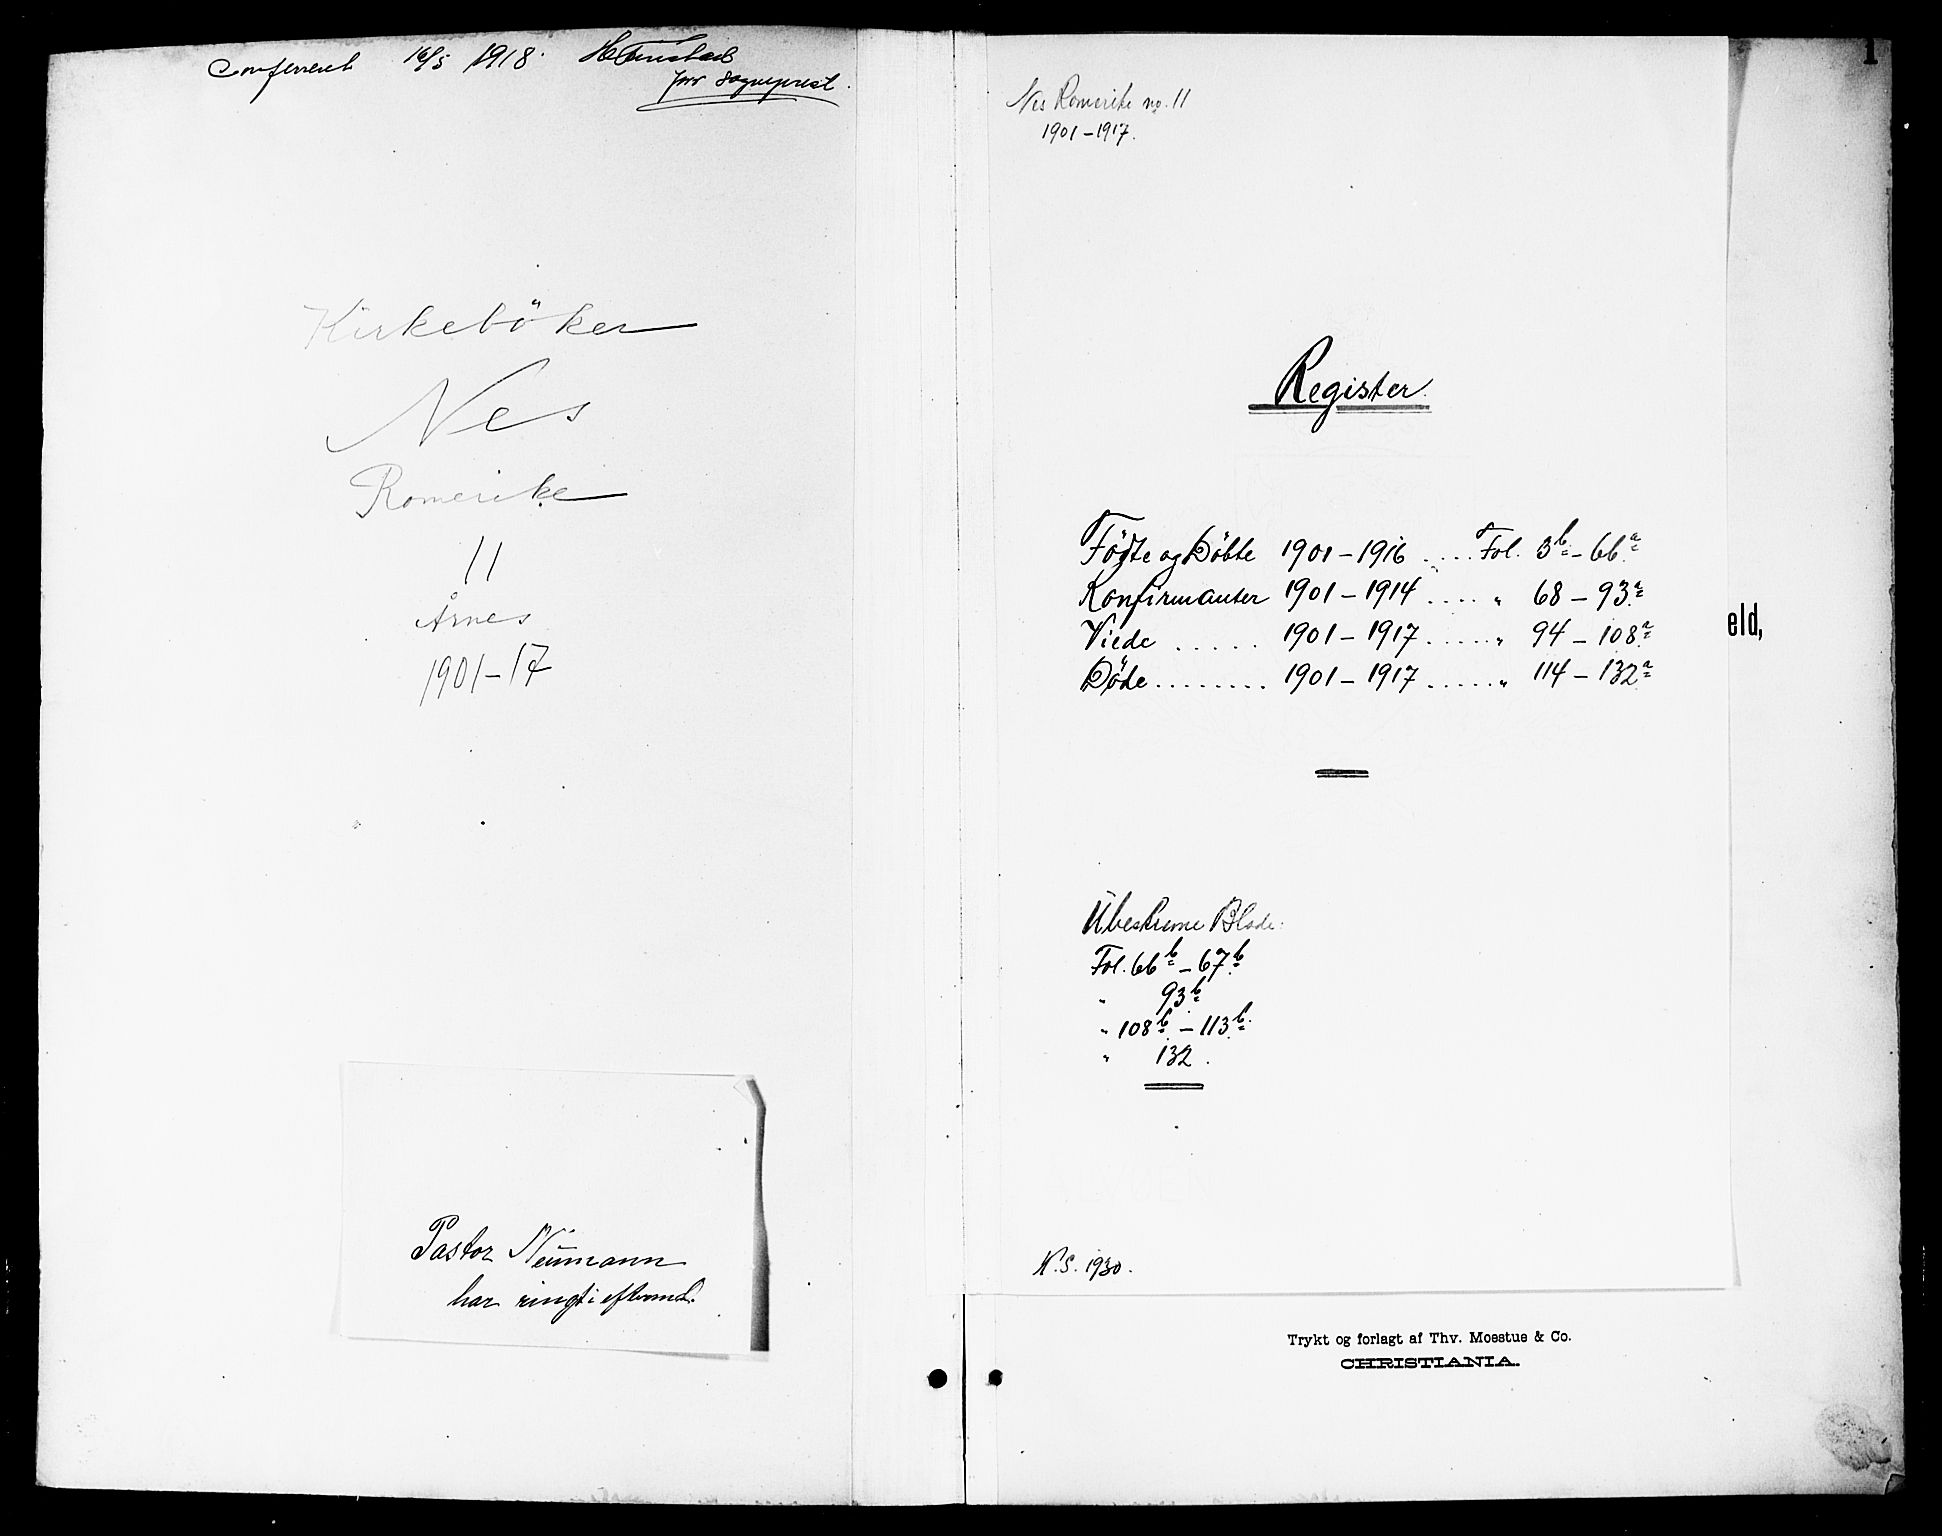 Confereret 16/5 1918.
fov sogneprest.
Kirkeböker
Nes
Romerike
11
Årnes
1901-17
Pastor Neumann
har ringt i efterm.
Nes Romerike no. 11
1901-1917.
Register.
Födte og Döbte 1901-1916 .... Fol. 3b - 66a
Konfirmanter 1901-1914 .... " 68 - 93a
Viede ..... 1901-1917 ..... " 94 - 108a
Döde ........ 1901-1917 ..... " 114 - 132a
eld,
Ubeskrevne Blade:
Fol. 66b - 67b
" 93b
" 108b - 113b
" 132.
N.S. 1930.
Trykt og forlagt af Thv. Moestue & Co.
CHRISTIANIA.
1